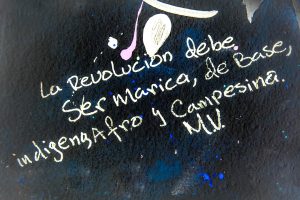 La Revolución debe
Ser Marica, de Base,
indigenaAfro y Campesina.
M.V.